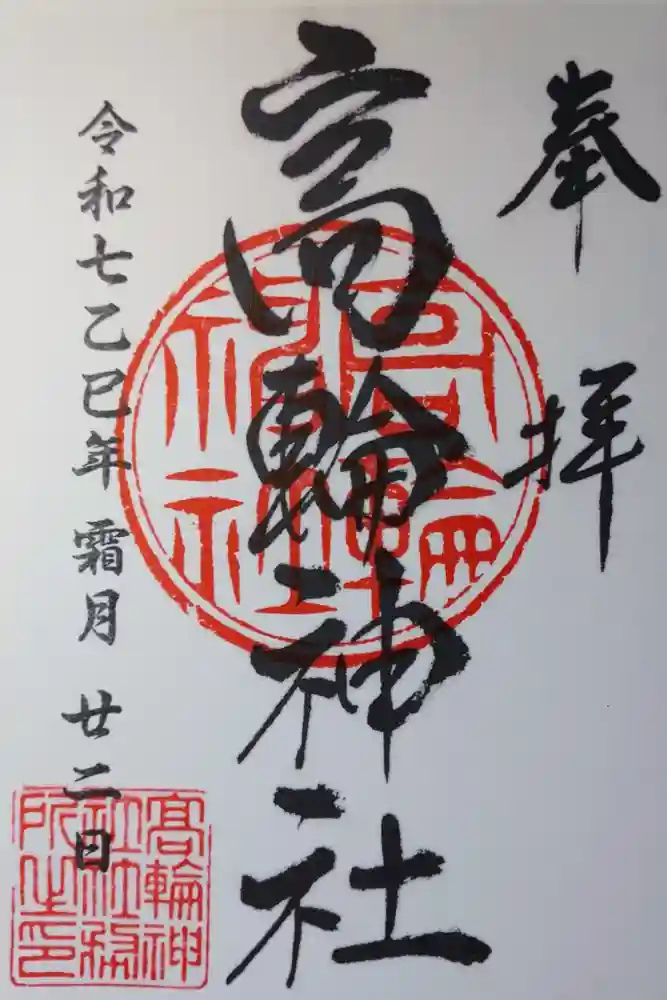 奉拝
高輪神社
令和七乙巳年 霜月 廿二日
高輪神社
高輪神社社務所之印